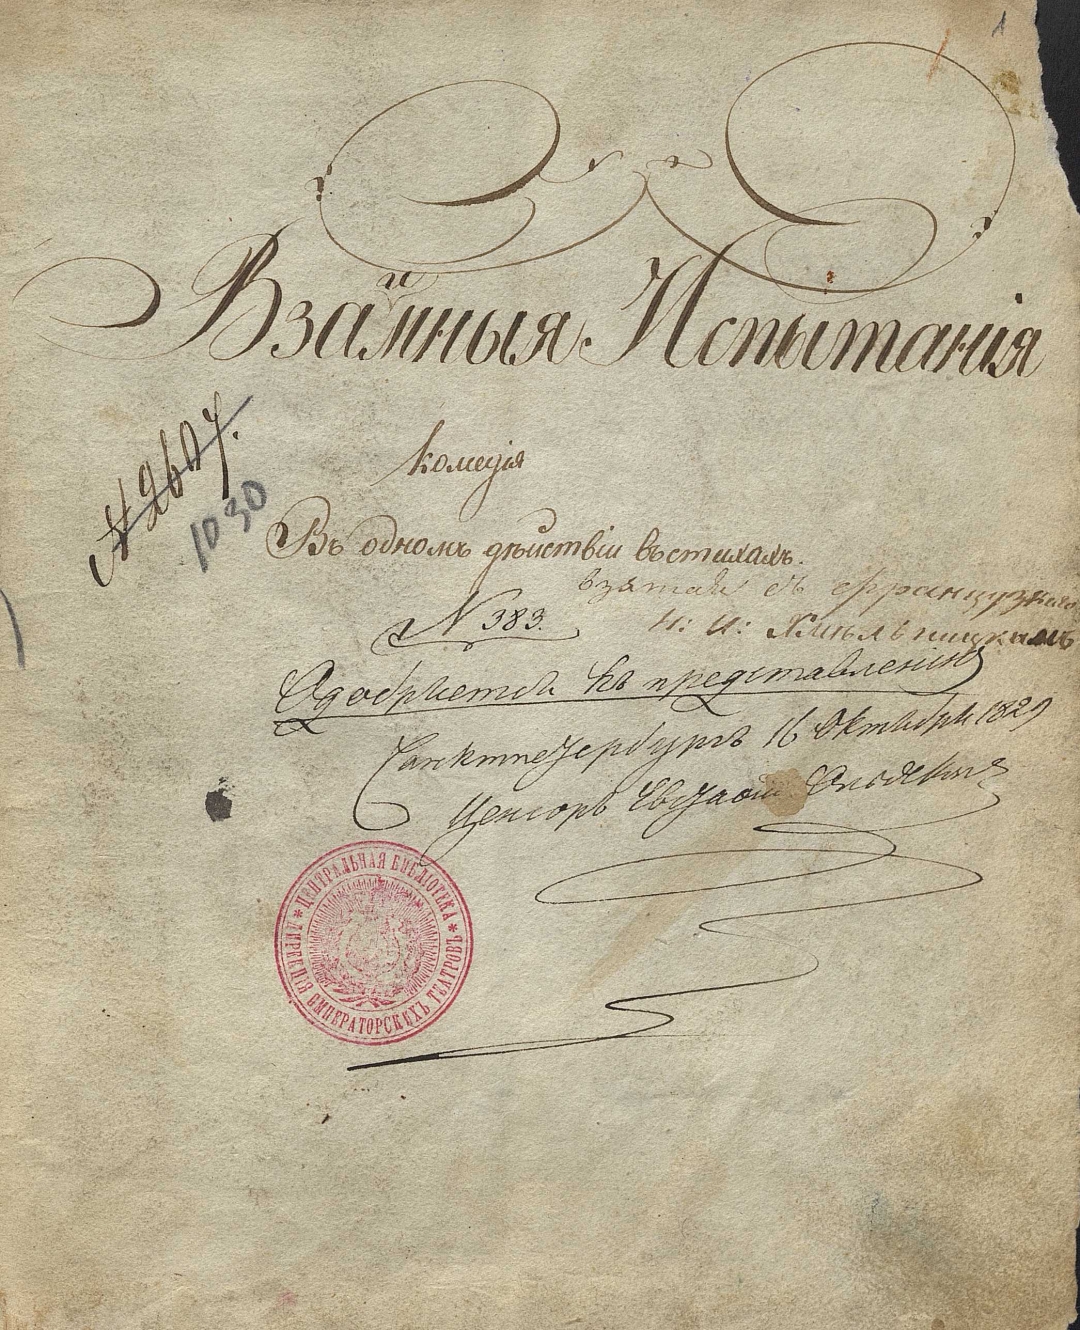 1
Взаимныя Испытанія
№ 2607.
1030
комедія
Въ одномъ дѣйствіи въ стихахъ.
взятая съ французкаго
№ 383.
Н: И: Хмѣльницкимъ
Одобряется къ представленію
Санктпетербургъ 16 Октября 1829
Цензоръ Евстафій
ЦЕНТРАЛЬНАЯ БИБЛІОТЕКА
ДИРЕКЦІЯ ИМПЕРАТОРСКИХЪ ТЕАТРОВЪ